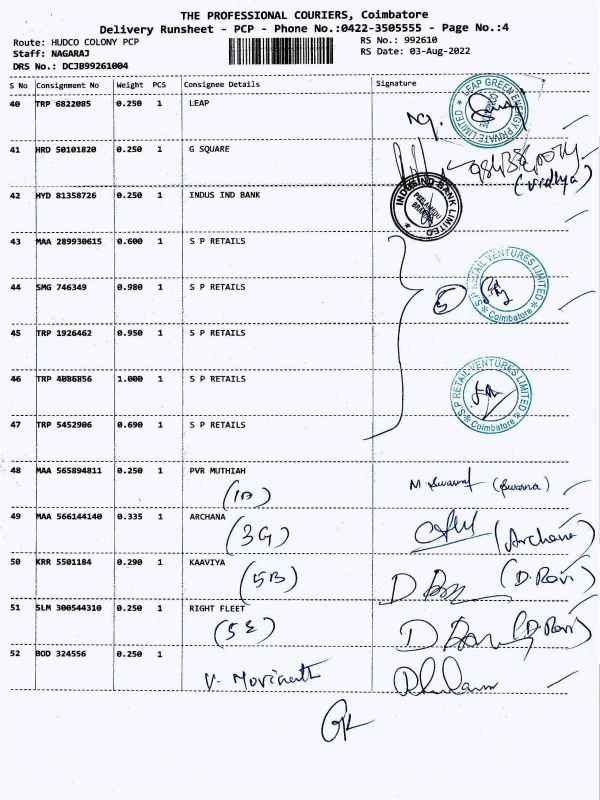 THE PROFESSIONAL COURIERS, Coimbatore
Delivery Runsheet - PCP - Phone No.:0422-3505555 - Page No.:4
Route: HUDCO COLONY PCP
RS No.: 992610
Staff: NAGARAJ
RS Date: 03-Aug-2022
DRS No.: DCJB99261004
S No Consignment No Weight PCS Consignee Details Signature
40 TRP 6822085 0.250 1 LEAP
LEAP GREEN ENERGY PRIVATE LIMITED
41 HRD 50101820 0.250 1 G SQUARE
(Vidhya)
42 HYD 81358726 0.250 1 INDUS IND BANK
INDUSIND BANK LIMITED
43 MAA 289930615 0.600 1 S P RETAILS
44 SMG 746349 0.980 1 S P RETAILS
5
S P RETAIL VENTURES LIMITED
Coimbatore
45 TRP 1926462 0.950 1 S P RETAILS
46 TRP 4086856 1.000 1 S P RETAILS
S P RETAIL VENTURES LIMITED
Coimbatore
47 TRP 5452906 0.690 1 S P RETAILS
48 MAA 565894811 0.250 1 PVR MUTHIAH
(1A)
(Swarna)
49 MAA 566144140 0.335 1 ARCHANA
(3G)
(Archana)
50 KRR 5501184 0.290 1 KAAVIYA
(5B)
(D. Ravi)
51 SLM 300544310 0.250 1 RIGHT FLEET
(5E)
(D. Ravi)
52 BOD 324556 0.250 1